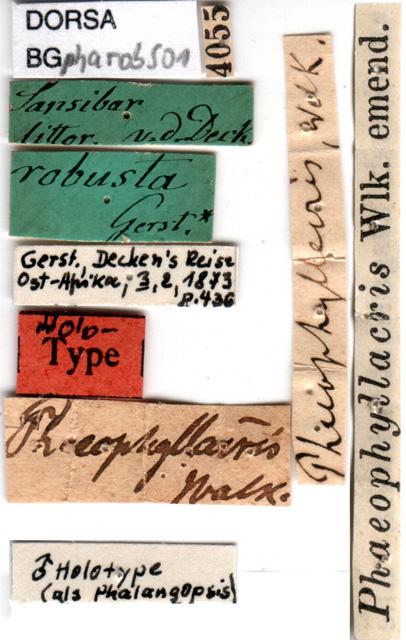 DORSA
BG pharobS01
4055
Sansibar
littor. v. d. Deck.
robusta
Gerst.*
Gerst., Decken's Reise
Ost-Afrika, 3, 2, 1873
p. 436
Holo-
Type
Phaeophyllacris
Walk.
♂ Holotype
(als Phalangopsis)
Phaeophyllacris, Wlk.
Phaeophyllacris Wlk. emend.